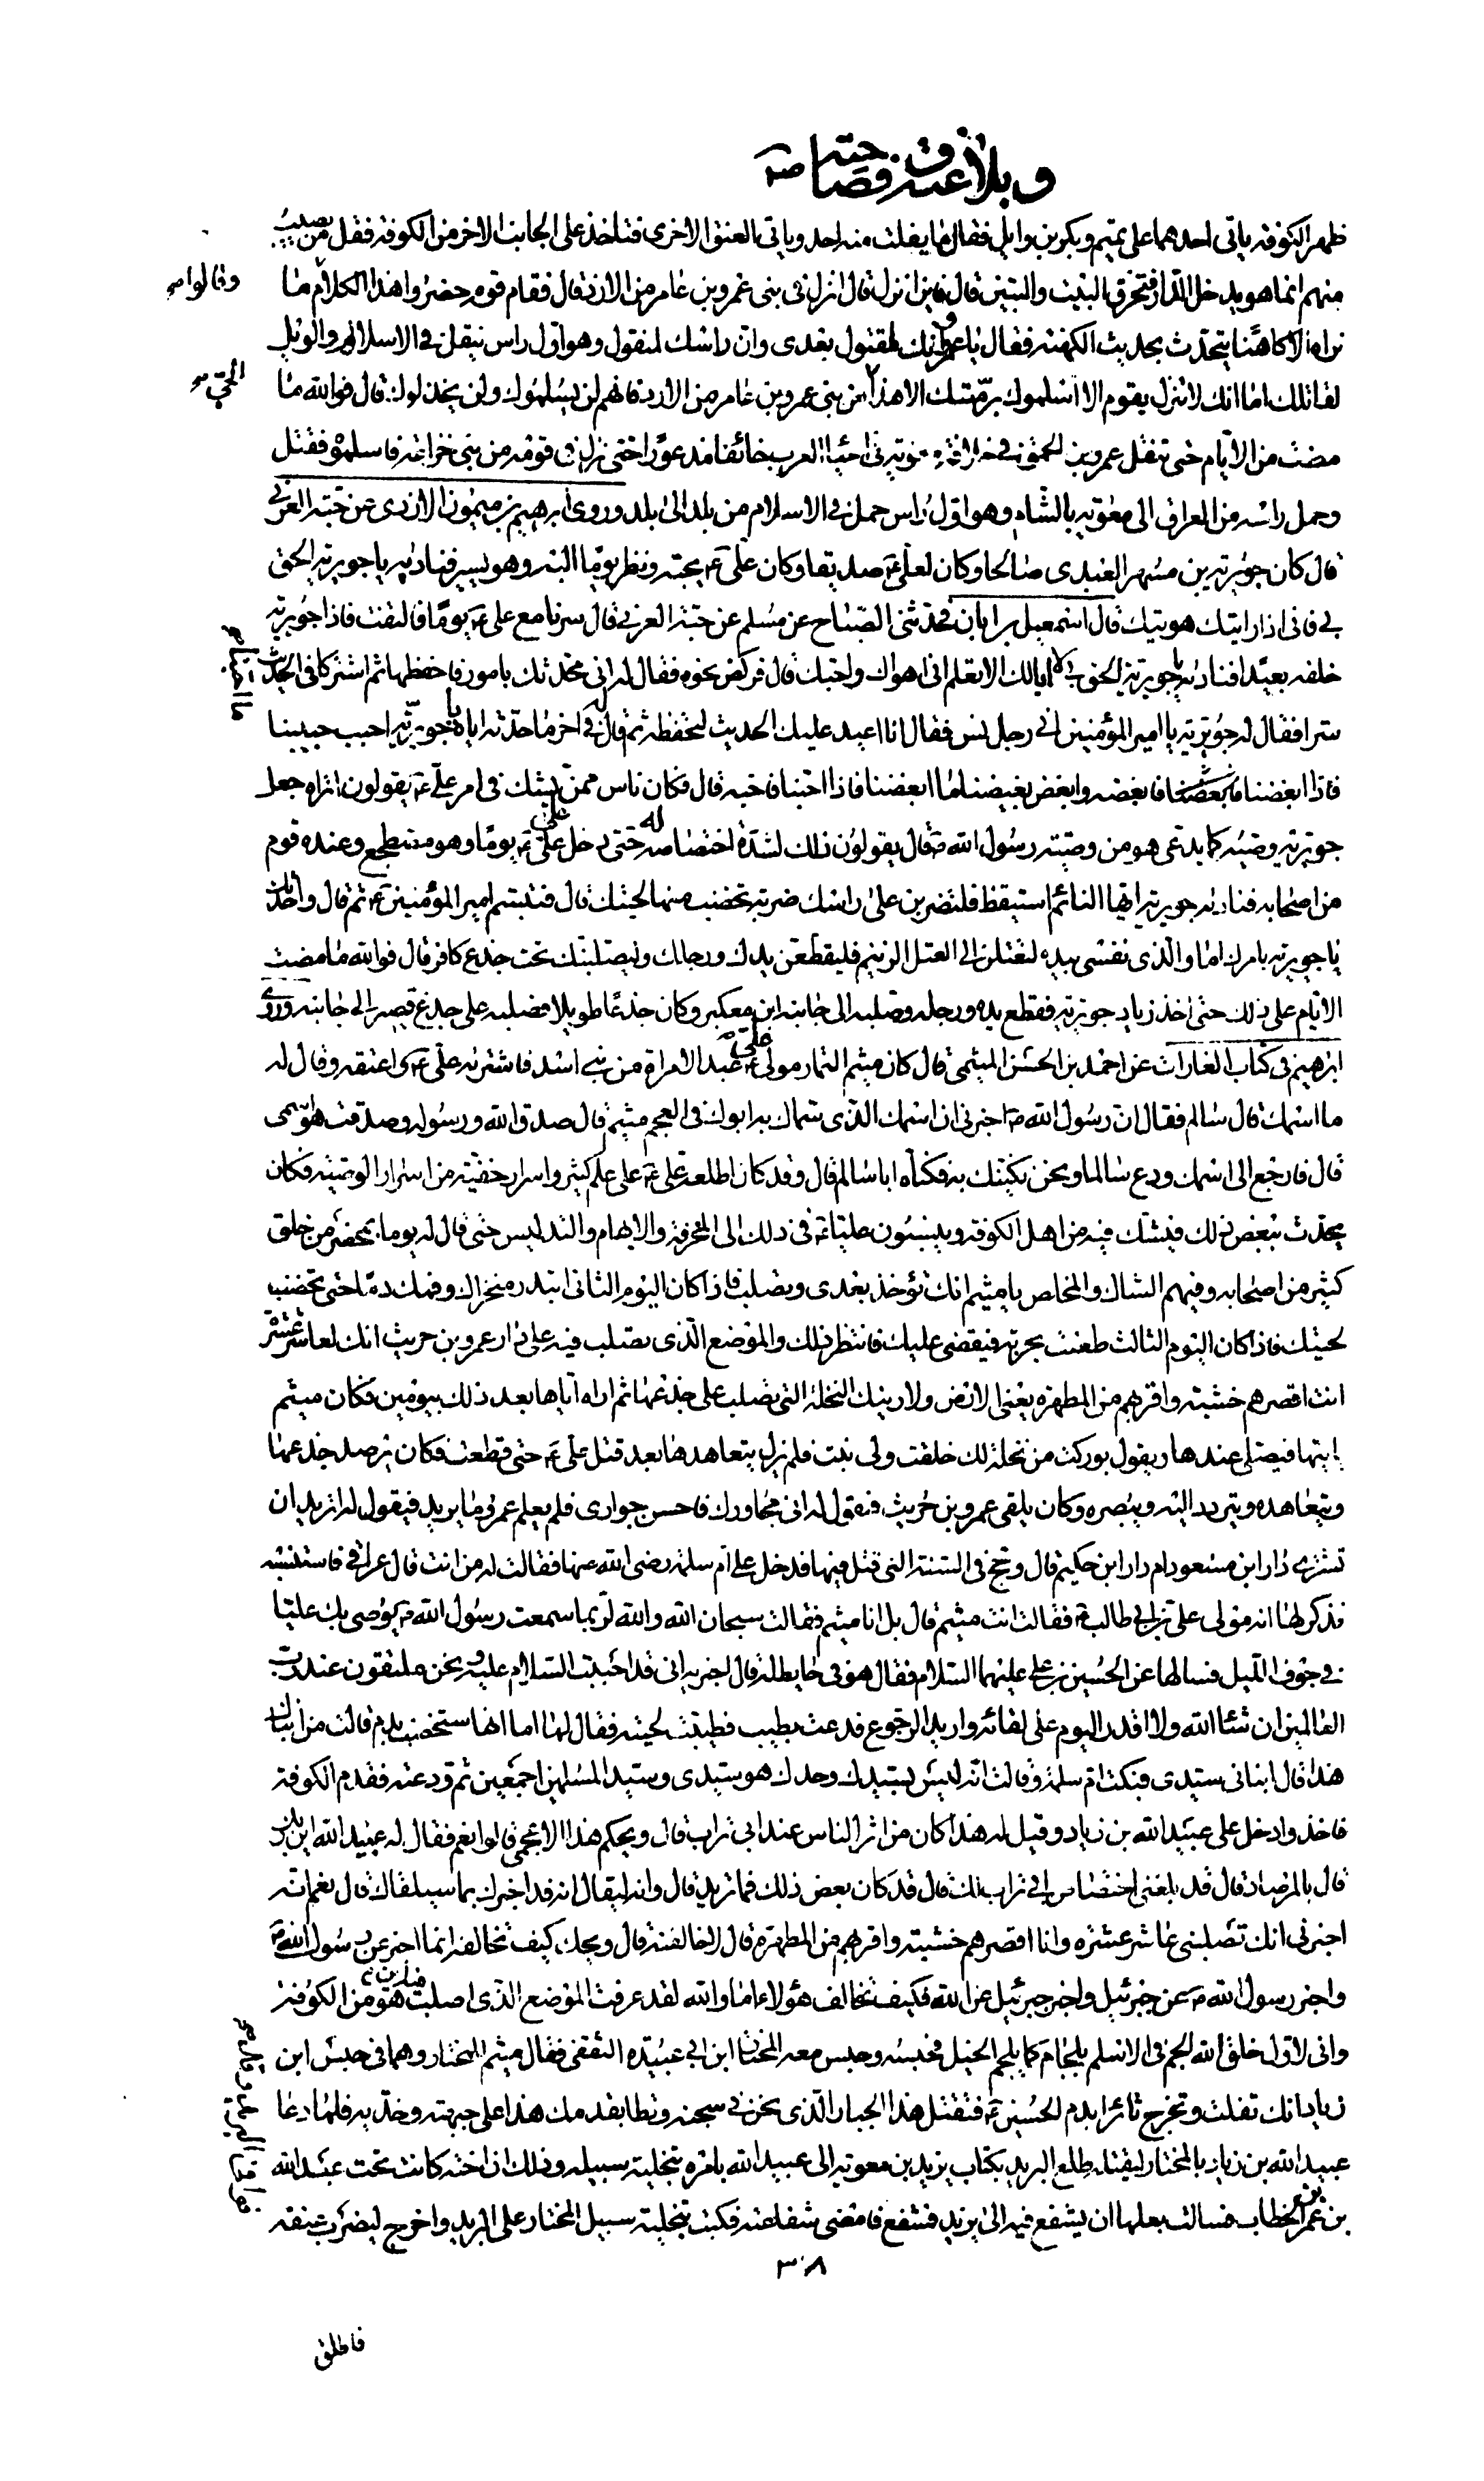 وبلاغته وفصاحته ص
ظهر الكوفة ياتي احدهما على تميم وبكر بن وايل فقال ما يفلت منه احد وياتي العنق الاخرى فتاخذ على الجانب الاخر من الكوفة فقل من يصيب
منهم انما هو يدخل الدار فتحرق البيت والبيتين قال فاين انزل قال انزل في بني عمرو بن عامر من الازد قال فقام قوم حضروا هذا الكلام ما
وقالوا ص
نراه الا كاهنا يتحدث بحديث الكهنة فقال يا عمرو انك لمقتول بعدي وان راسك لمنقول وهو اول راس ينقل في الاسلام والويل
لقاتلك اما انك لا تنزل بقوم الا اسلموك برمتك الا هذا الحي من بني عمرو بن عامر من الازد فانهم لن يسلموك ولن يخذلوك قال فوالله ما
الحي ص
مضت من الايام حتى تنقل عمرو بن الحمق في خلافة معوية في احياء العرب خائفا مذعورا حتى نزل في قومه من بني خزاعة فاسلموه فقتل
وحمل راسه من العراق الى معوية بالشام وهو اول راس حمل في الاسلام من بلد الى بلد وروى ابرهيم بن ميمون الازدي عن حبة العرني
قال كان جويرية بن مسهر العبدي صالحا وكان لعلي ع صديقا وكان علي ع يحبه ونظر يوما اليه وهو يسير فناداه يا جويرية الحق
بي فاني اذا رايتك هويتك قال اسمعيل بن ابان فحدثني الصباح عن مسلم عن حبة العرني قال سرنا مع علي ع يوما فالتفت فاذا جويرية
خلفه بعيدا فناداه يا جويرية الحق بي لا ابا لك الا تعلم اني اهواك واحبك قال فركض نحوه فقال له اني محدثك بامور فاحفظها ثم اشتركا في الحديث
سرا فقال له جويرية يا امير المؤمنين اني رجل نس فقال انا اعيد عليك الحديث لتحفظه ثم قال له في اخر ما حدثه اياه يا جويرية احبب حبيبنا ما احبنا
فاذا ابغضنا فابغضه وابغض بغيضنا ما ابغضنا فاذا احبنا فاحبه قال فكان ناس ممن يشك في امر علي ع يقولون اتراه جعل
جويرية وصيه كما يدعي هو من وصية رسول الله ص قال يقولون ذلك لشدة اختصاصه له حتى دخل على علي ع يوما وهو مضطجع وعنده قوم
من اصحابه فناداه جويرية ايها النائم استيقظ فلتضربن على راسك ضربة تخضب منها لحيتك قال فتبسم امير المؤمنين ع ثم قال واحدثك
يا جويرية بامرك اما والذي نفسي بيده لتعتلن الى العتل الزنيم فليقطعن يدك ورجلك وليصلبنك تحت جذع كافر قال فوالله ما مضت
الايام على ذلك حتى اخذ زياد جويرية فقطع يده ورجله وصلبه الى جانبه ابن معكبر وكان جذعا طويلا فصلبه على جذع قصير الى جانبه وروى
ابرهيم في كتاب الغارات عن احمد بن الحسن الميثمي قال كان ميثم التمار مولى علي ع عبدا لامراة من بني اسد فاشتراه علي ع واعتقه وقال له
ما اسمك قال سالم فقال ان رسول الله ص اخبرني ان اسمك الذي سماك به ابوك في العجم ميثم قال صدق الله ورسوله وصدقت هو اسمي
قال فارجع الى اسمك ودع سالما ونحن نكنيك به فكناه ابا سالم قال وقد كان اطلعه علي ع على علم كثير واسرار خفية من اسرار الوصية فكان
يحدث ببعض ذلك فيشك فيه من اهل الكوفة وينسبون عليا ع في ذلك الى المخرقة والايهام والتدليس حتى قال له يوما بمحضر من خلق
كثير من اصحابه وفيهم الشاك والمخلص يا ميثم انك تؤخذ بعدي وتصلب فاذا كان اليوم الثاني ابتدر منخراك وفمك دما حتى تخضب
لحيتك فاذا كان اليوم الثالث طعنت بحربة فيقضى عليك فانتظر ذلك والموضع الذي تصلب فيه على دار عمرو بن حريث انك لعاشر عشرة
انت اقصرهم خشبة واقربهم من المطهرة يعني الارض ولارينك النخلة التي تصلب على جذعها ثم اراه اياها بعد ذلك بيومين فكان ميثم
ياتيها فيصلي عندها ويقول بوركت من نخلة لك خلقت ولي نبت فلم يزل يتعاهدها بعد قتل علي ع حتى قطعت فكان يرصد جذعها
ويتعاهده ويتردد اليه ويبصره وكان يلقى عمرو بن حريث فيقول له اني مجاورك فاحسن جواري فلم يعلم عمرو ما يريد فيقول له اتريد ان
تشتري دار ابن مسعود ام دار ابن حكيم قال وحج في السنة التي قتل فيها فدخل على ام سلمة رضي الله عنها فقالت له من انت قال عراقي فاستنسبته
فذكر لها انه مولى علي بن ابي طالب ع فقالت انت ميثم قال بل انا ميثم فقالت سبحان الله والله لربما سمعت رسول الله ص يوصي بك عليا
في جوف الليل فسالها عن الحسين بن علي عليهما السلام فقال هو في حايط له قال اخبريه اني قد احببت السلام عليه ونحن ملتقون عند رب
العالمين ان شاء الله ولا اقدر اليوم على لقائه واريد الرجوع فدعت بطيب فطيبت لحيته فقال لها اما انها ستخضب بدم قالت من انباك
هذا قال انباني سيدي فبكت ام سلمة وقالت انه ليس بسيدك وحدك هو سيدي وسيد المسلمين اجمعين ثم ودعته فقدم الكوفة
فاخذ وادخل على عبيد الله بن زياد وقيل له هذا كان من اثر الناس عند ابي تراب قال ويحكم هذا الاعجمي قالوا نعم فقال له عبيد الله اين ربك
قال بالمرصاد قال قد بلغني اختصاص ابي تراب لك قال قد كان بعض ذلك فما تريد قال وانه ليقال انه قد اخبرك بما سيلقاك قال نعم انه
اخبرني انك تصلبني عاشر عشرة وانا اقصرهم خشبة واقربهم من المطهرة قال لاخالفنه قال ويحك كيف تخالفه انما اخبر عن رسول الله ص
واخبر رسول الله ص عن جبرئيل واخبر جبرئيل عن الله فكيف تخالف هؤلاء اما والله لقد عرفت الموضع الذي اصلب فيه اين هو من الكوفة
واني لاول خلق الله الجم في الاسلام بلجام كما يلجم الخيل فحبسه وحبس معه المختار ابن ابي عبيدة الثقفي فقال ميثم للمختار وهما في حبس ابن
زياد انك تفلت وتخرج ثائرا بدم الحسين ع فتقتل هذا الجبار الذي نحن في سجنه وتطا بقدمك هذا على جبهته وخديه فلما دعا
عبيد الله بن زياد بالمختار ليقتله طلع البريد بكتاب يزيد بن معوية الى عبيد الله يامره بتخلية سبيله وذلك ان اخته كانت تحت عبد الله
بن عمر بن الخطاب فسالت بعلها ان يشفع فيه الى يزيد فشفع فامضى شفاعته فكتب بتخلية سبيل المختار على البريد واخرج ليضرب عنقه
٣٠٨
فاطلق